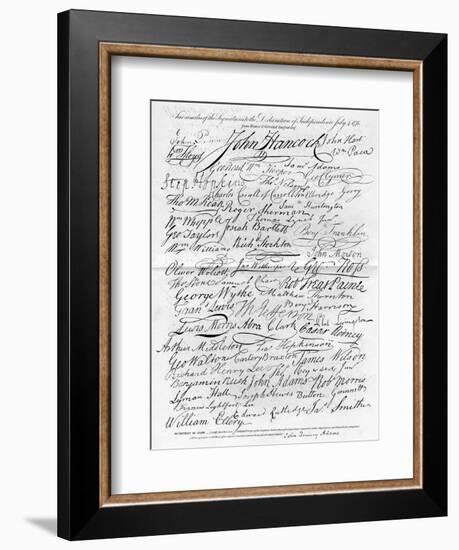 Fac-similes of the Signatures to the Declaration of Independence July 4, 1776
John Penn John Hancock John Hart
Wm Floyd Wm Paca
Geo Read Wm Hooper Saml Adams
Step Hopkins Tho Nelson jr Geo Clymer
Charles Carroll of Carrollton Elbridge Gerry
Tho M:Kean Roger Sherman Sam Huntington
Wm Whipple Thomas Lynch Junr
Geo Taylor Josiah Bartlett Benj Franklin
Wm Williams Richd Stockton John Morton
Oliver Wolcott Jno Witherspoon Geo Ross
Tho Stone Samuel Chase Rob Treat Paine
George Wythe Matthew Thornton
Frans Lewis Th Jefferson Benj Harrison
Lewis Morris Abra Clark Phil Livingston Cæsar Rodney
Arthur Middleton Fras Hopkinson
Geo Walton Carter Braxton James Wilson
Richard Henry Lee Tho Heyward Junr
Benjamin Rush John Adams Rob Morris
Lyman Hall Joseph Hewes Button Gwinnett
Francis Lightfoot Lee
William Ellery Edward Rutledge Jas Smith
John Quincy Adams